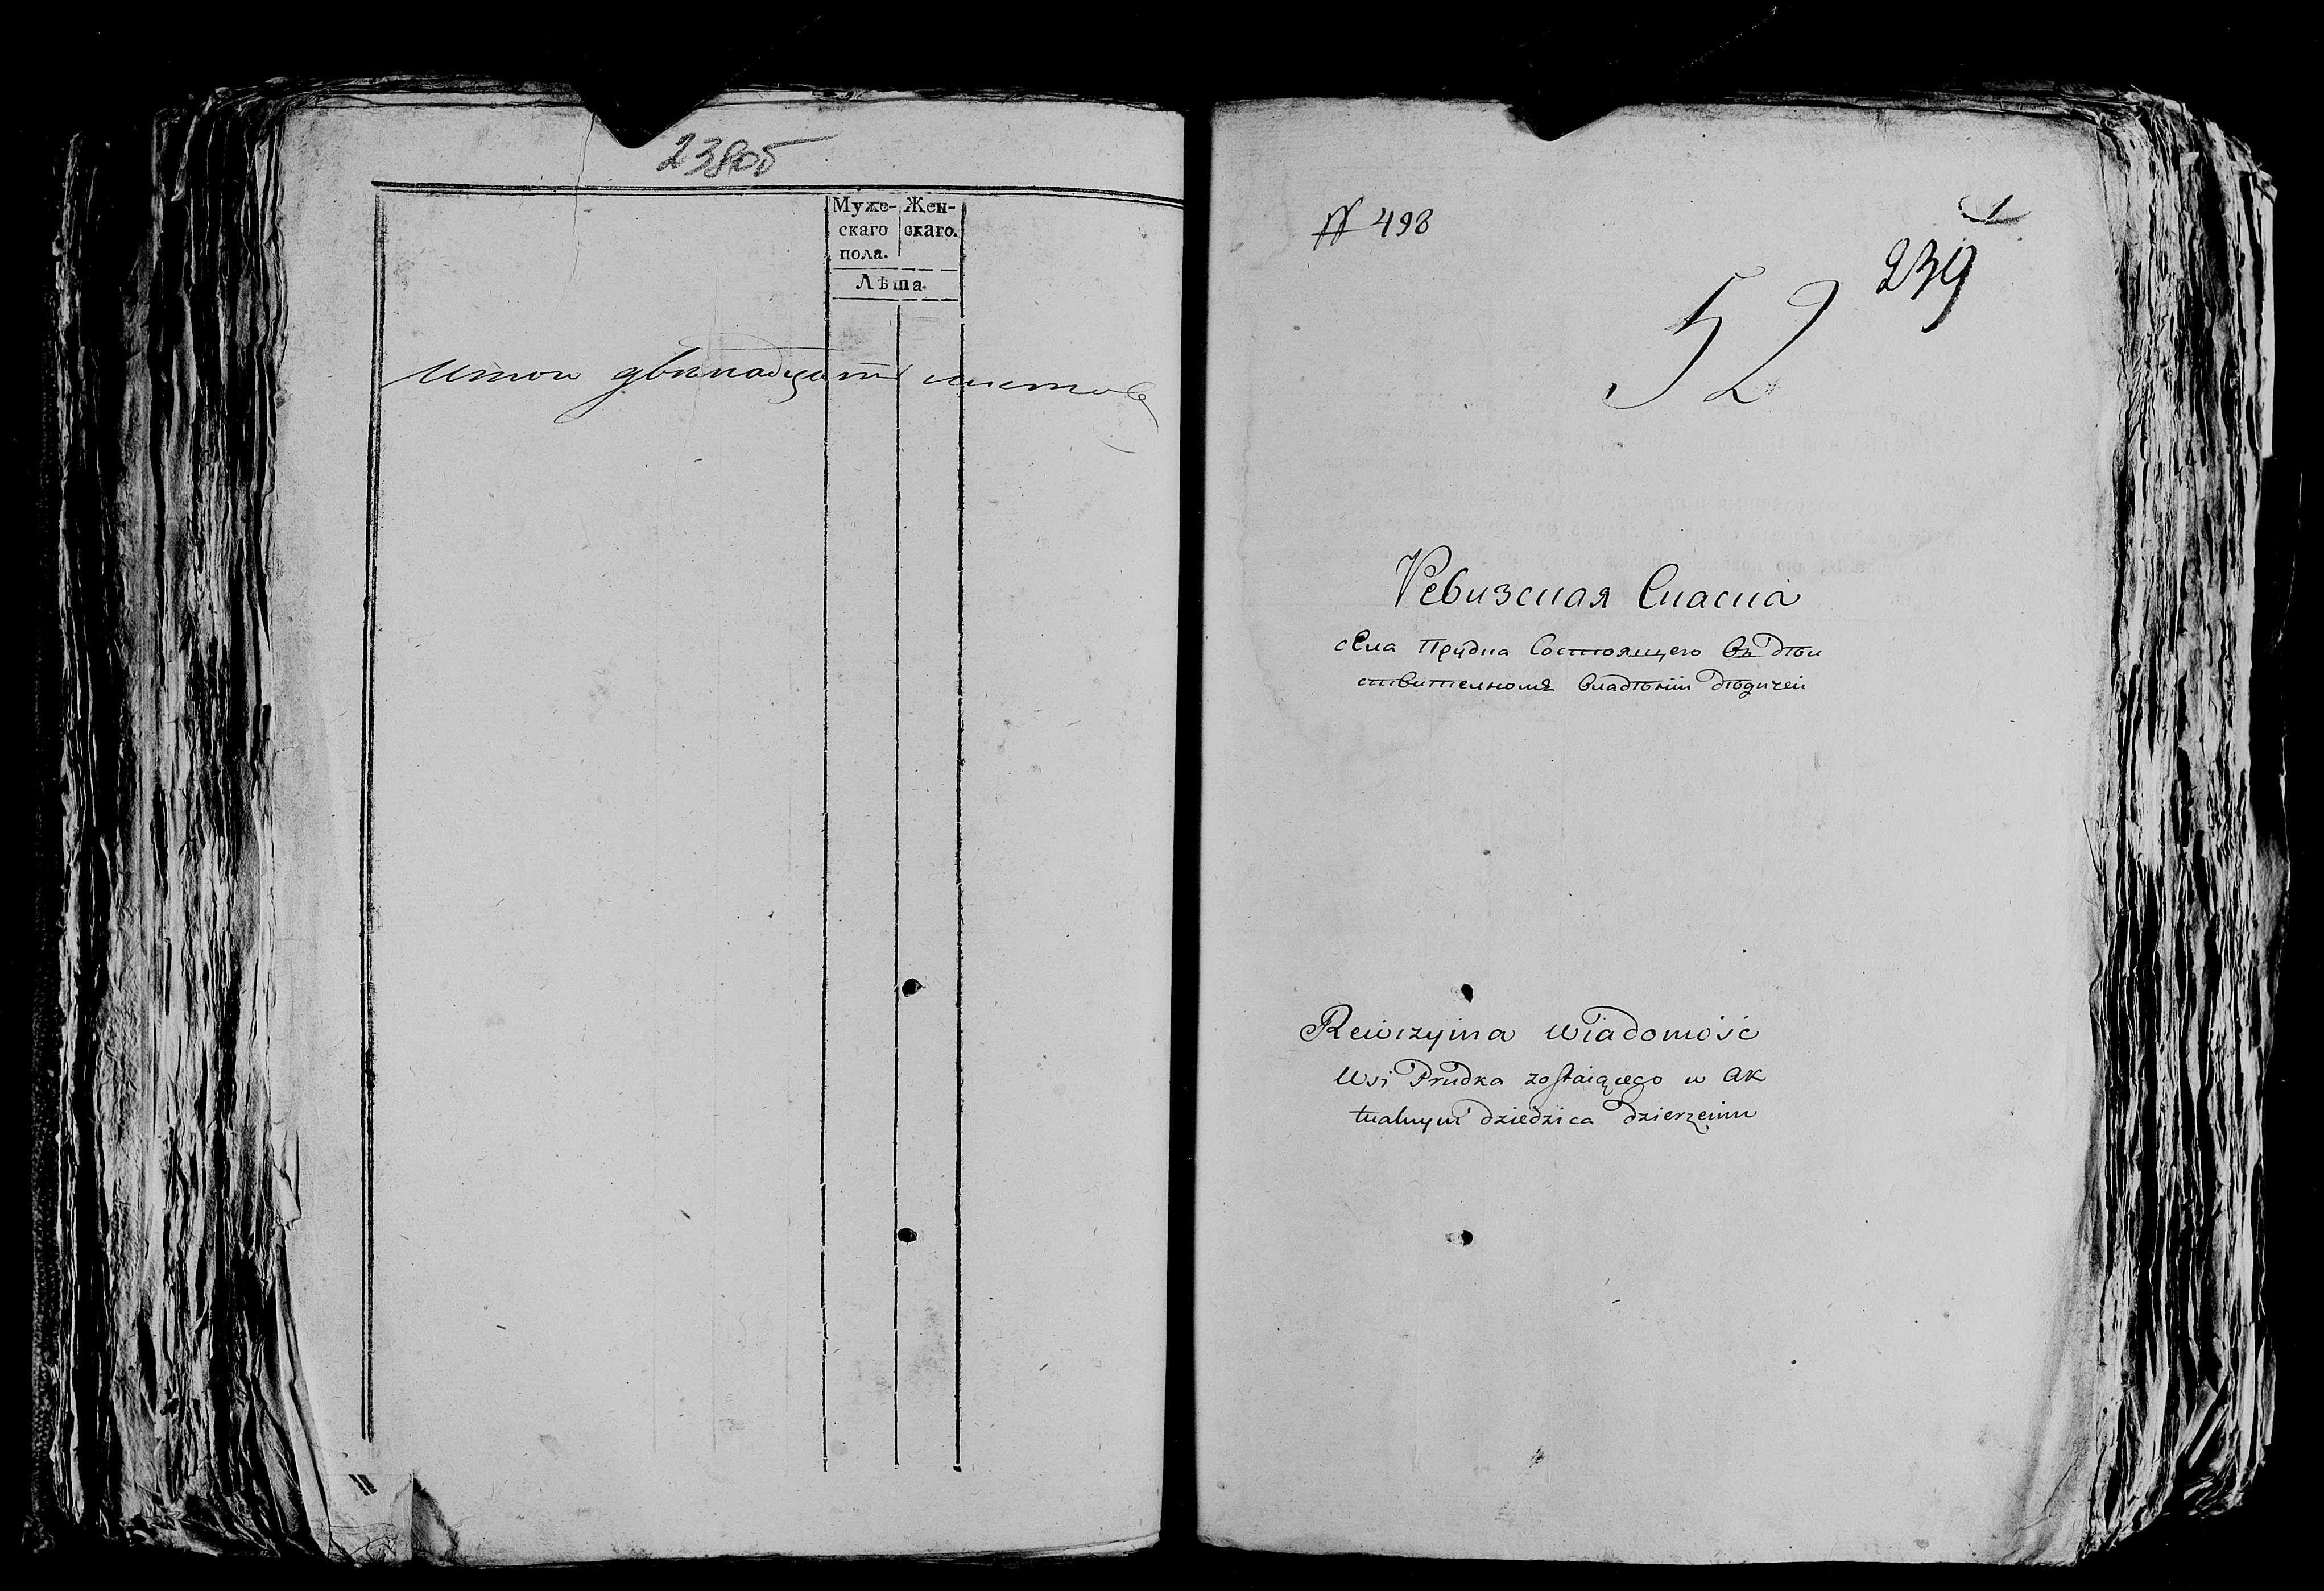 238об
Муже-
скаго
пола.
Жен-
скаго.
Лѣта.
Итого двѣнадцать листовъ
№ 498
1
239
52
Ревизская Сказка
села Прудка Состоящего въ дѣй
ствителномъ владѣнiи дѣдичей
Rewizyina Wiadomość
Wsi Prudka zostaiącego w Ak
tualnym dziedzica dzierżeniu